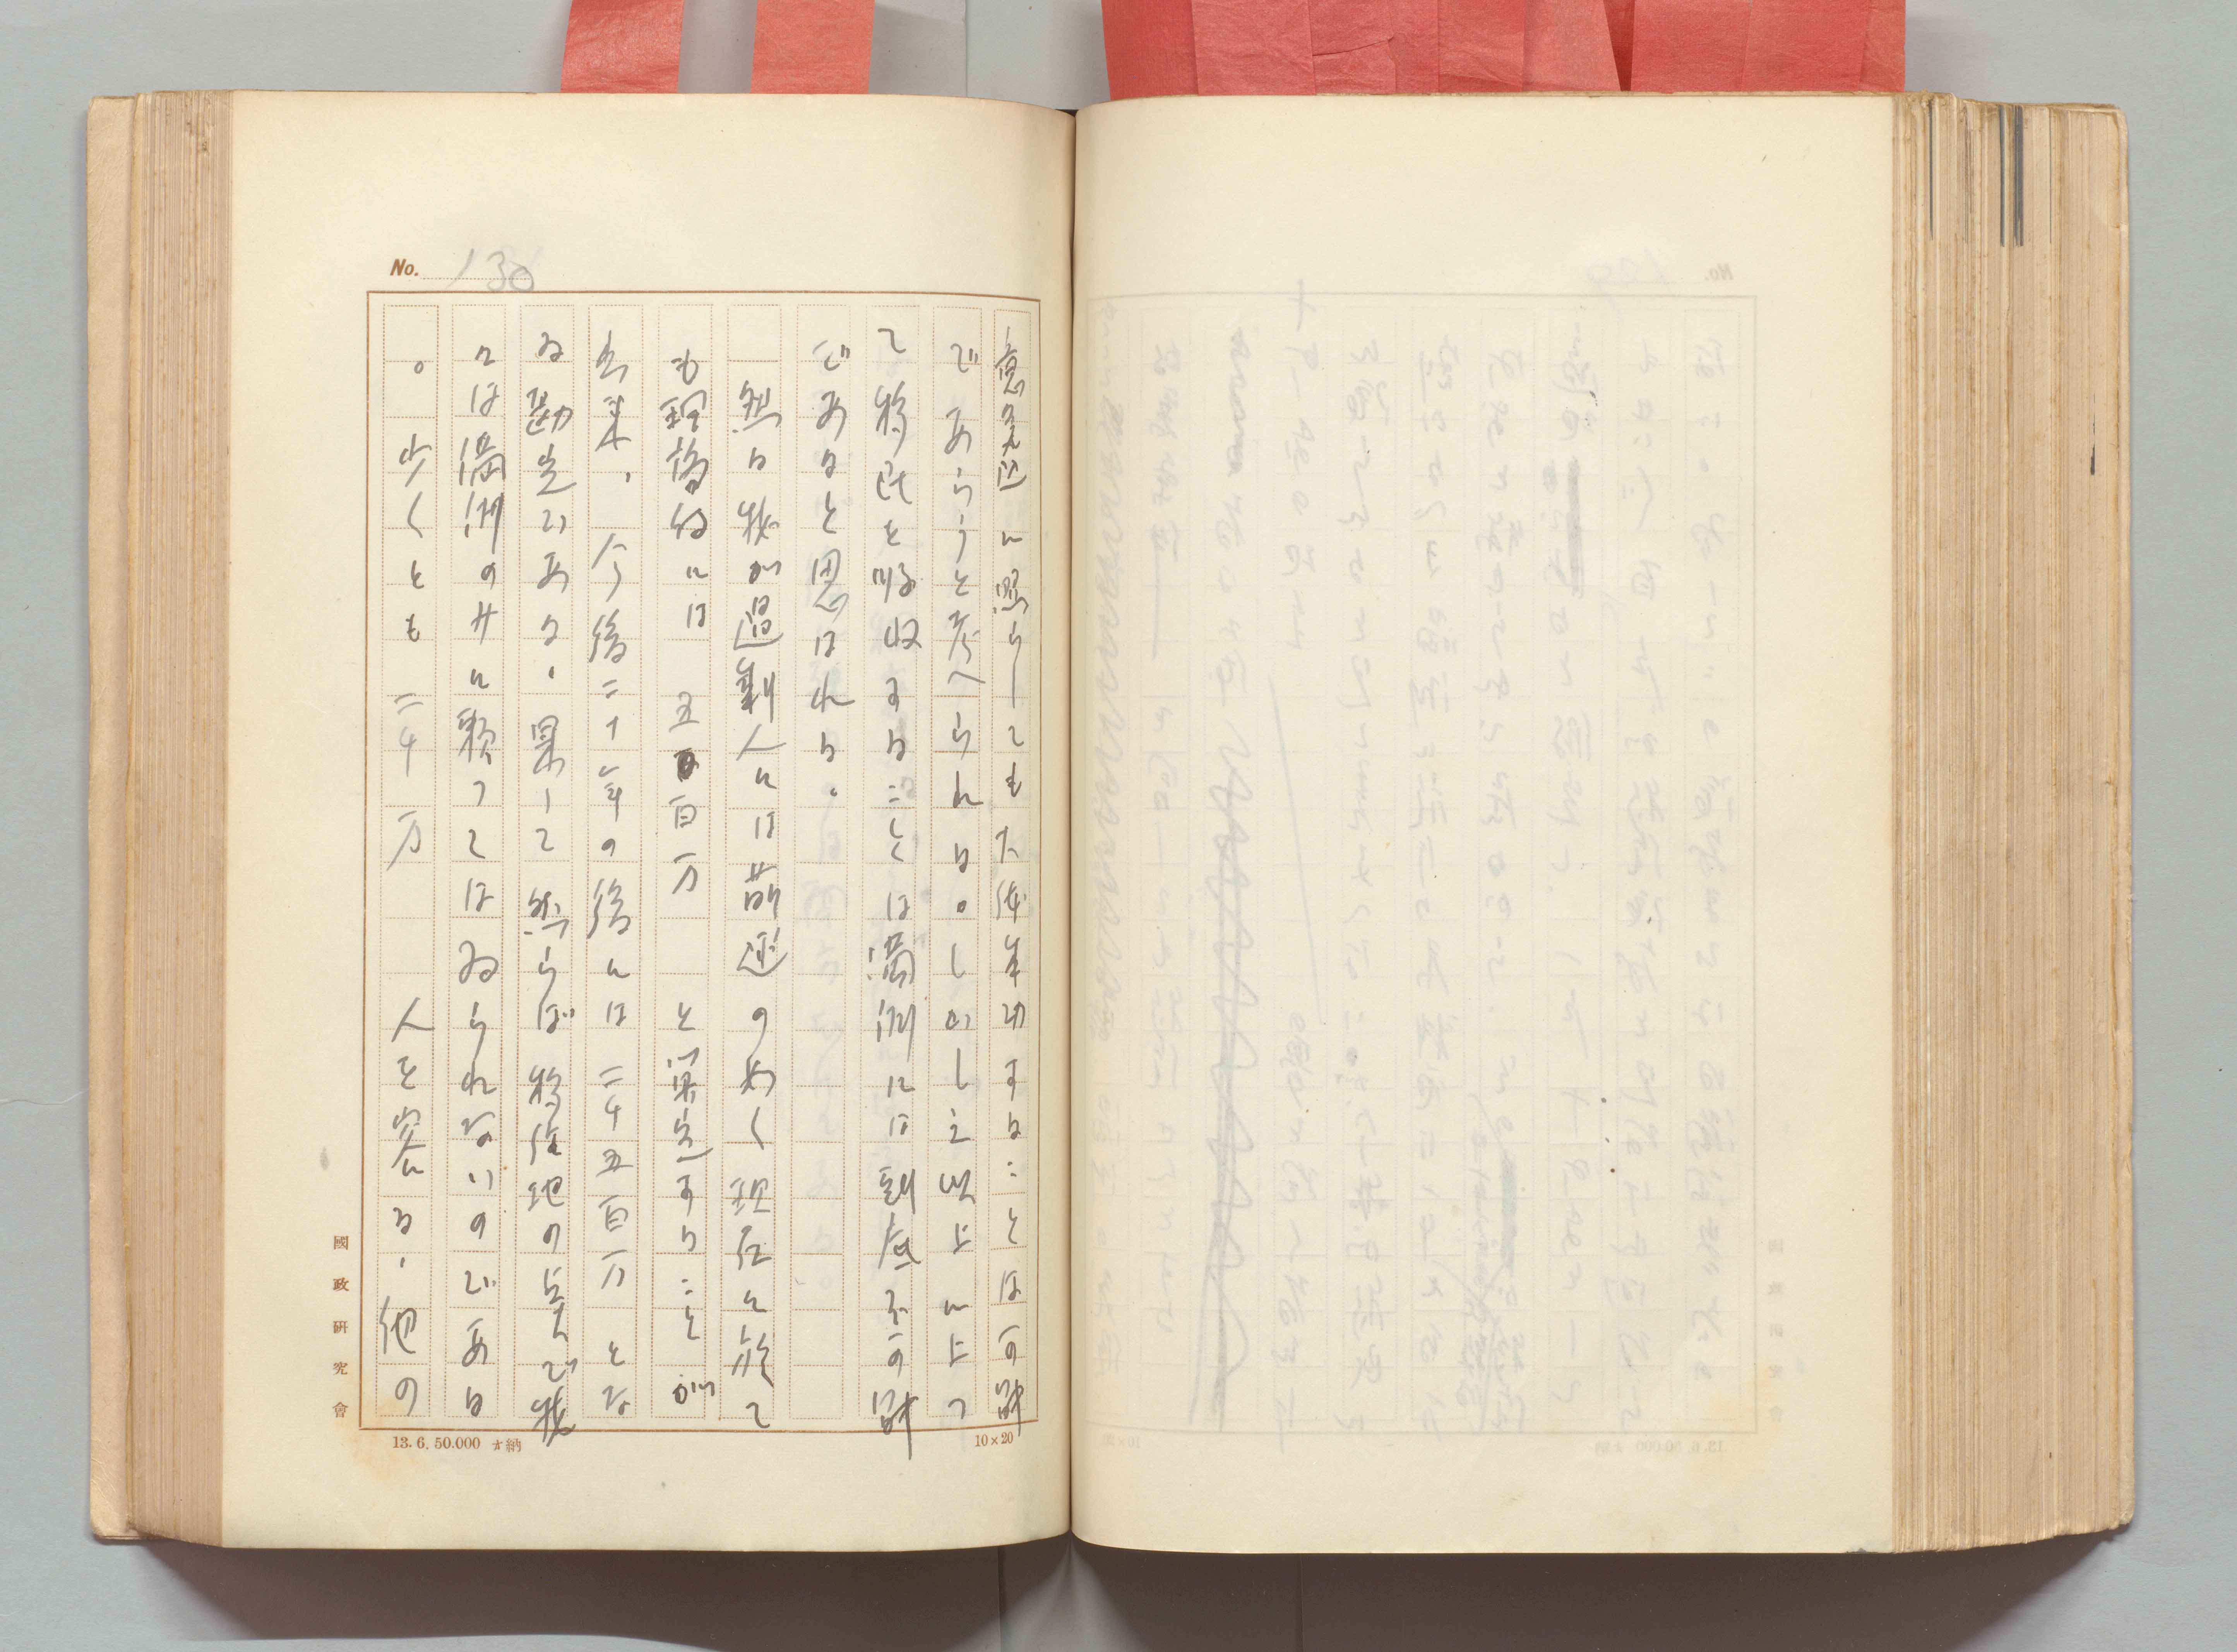 No. 130
意気込に照らしても大体成功することは可能
であらうと考へられる。しかしこれ以上によつ
て移民を吸収することは満洲には到底不可能
であると思はれる。
然る我が過剰人口は前述の如く現在に於て
も理論的には五百万と算定することが
出来、今後二十年の後には二千五百万とな
る勘定である、果して然らば移住地の点で我
々は満洲のみに頼つてはゐられないのである
。少くとも二千万人を容れる、他の
國政研究會
13. 6. 50.000 ォ納
10×20